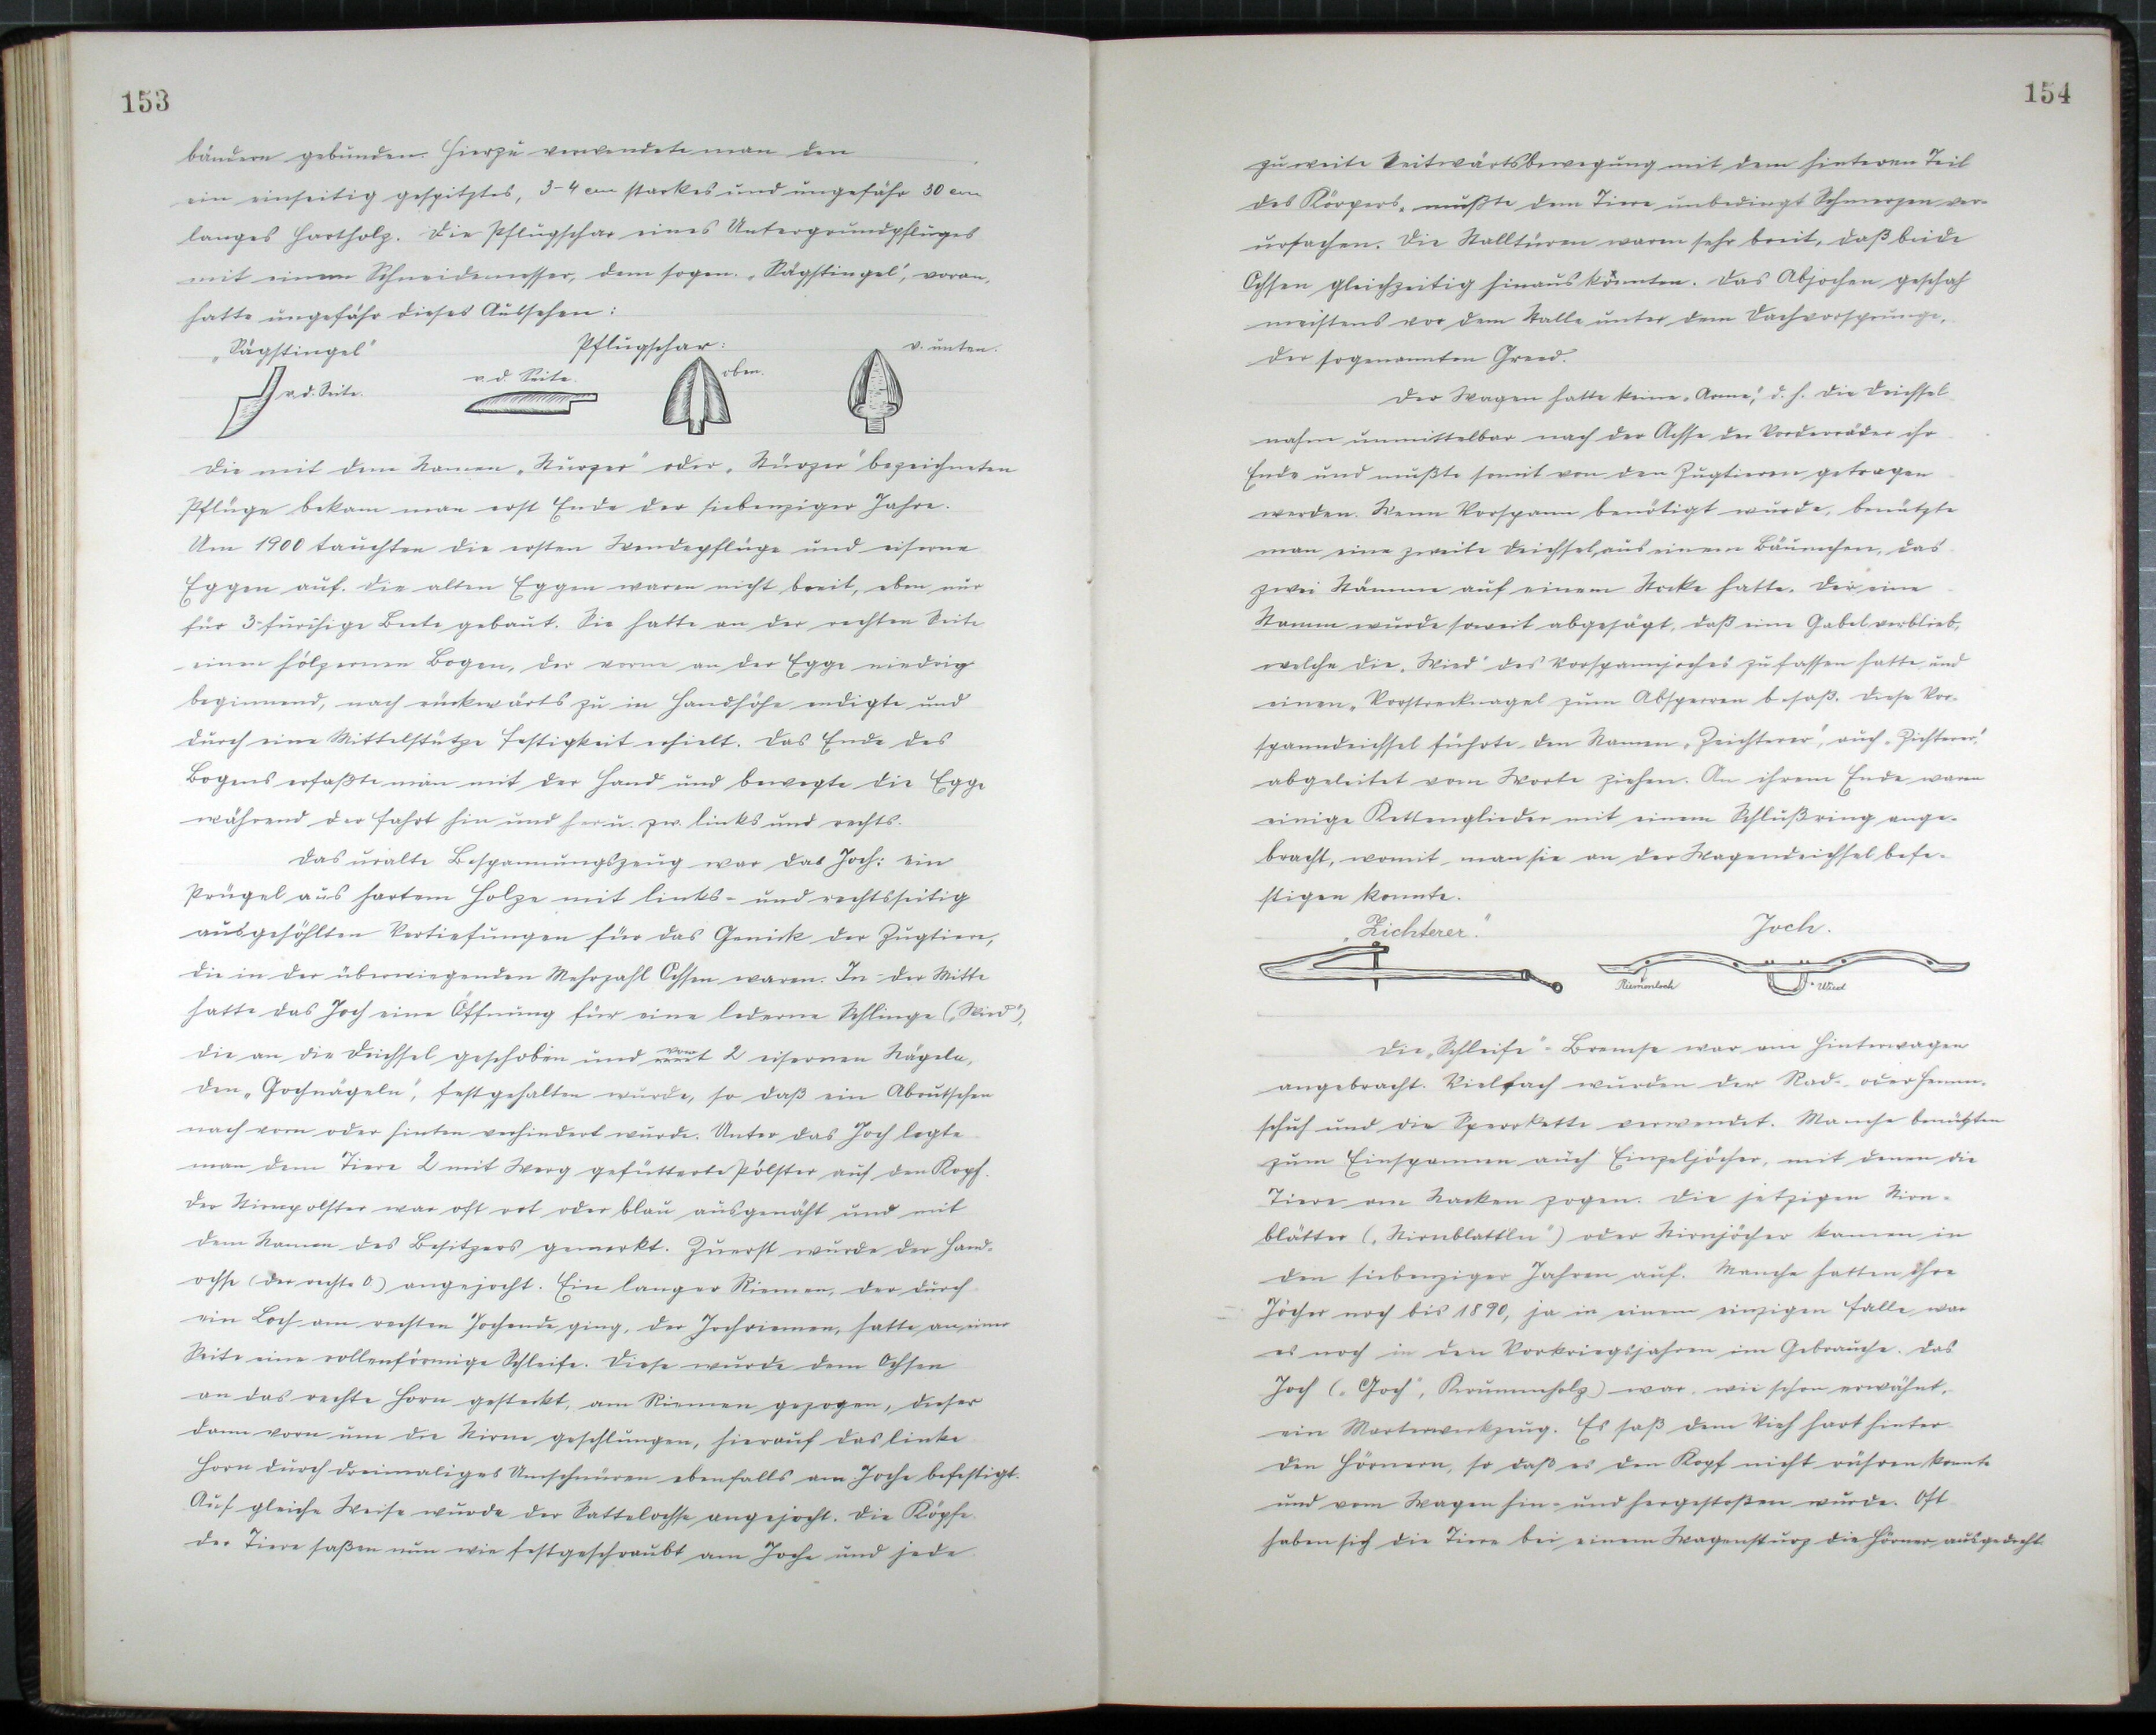 153
bändern gebunden. Hierzu verwendete man den
ein einseitig gespitztes, 3-4 cm starkes und ungefähr 30 cm
langes Hartholz. Die Pflugschar eines Untergrundpfluges
mit einem Schneidemesser, dem sogen. „Sägstingel", voran,
hatte ungefähr dieses Aussehen:
„Sägstingel" Pflugschar: v. unten.
v. d. Seite. v. d. Seite. oben.
Die mit dem Namen „Sturzer" oder „Stürzer" bezeichneten
Pflüge bekam man erst Ende der siebenziger Jahre.
Um 1900 tauchten die ersten Wendepflüge und eiserne
Eggen auf. Die alten Eggen waren nicht breit, eben nur
für 3-furchige Beete gebaut. Sie hatte an der rechten Seite
einen hölzernen Bogen, der vorne an der Egge niedrig
beginnend, nach rückwärts zu in Handhöhe endigte und
durch eine Mittelstütze Festigkeit erhielt. Das Ende des
Bogens erfaßte man mit der Hand und bewegte die Egge
während der Fahrt hin und her u. zw. links und rechts.
Das uralte Bespannungszeug war das Joch: ein
Prügel aus hartem Holze mit links- und rechtsseitig
ausgehöhlten Vertiefungen für das Genick der Zugtiere,
die in der überwiegenden Mehrzahl Ochsen waren. In der Mitte
hatte das Joch eine Öffnung für eine lederne Schlinge („Wied"),
die an die Deichsel geschoben und von 2 eisernen Nägeln,
den „Gochnägeln", festgehalten wurde, so daß ein Abrutschen
nach vorn oder hinten verhindert wurde. Unter das Joch legte
man dem Tiere 2 mit Werg gefütterte Pölster auf den Kopf.
Der Stirnpolster war oft rot oder blau ausgenäht und mit
dem Namen des Besitzers gemerkt. Zuerst wurde der Hand-
ochse (der rechte O.) angejocht. Ein langer Riemen, der durch
ein Loch am rechten Jochende ging, der Jochriemen, hatte an einer
Seite eine rollenförmige Schleife. Diese wurde dem Ochsen
an das rechte Horn gesteckt, am Riemen gezogen, dieser
dann vorn um die Stirne geschlungen, hierauf das linke
Horn durch dreimaliges Umschnüren ebenfalls am Joche befestigt.
Auf gleiche Weise wurde der Sattelochse angejocht. Die Köpfe
der Tiere saßen nun wie festgeschraubt am Joche und jede
154
zu weite Seitwärtsbewegung mit dem hinteren Teil
des Körpers, mußte dem Tiere unbedingt Schmerzen ver-
ursachen. Die Stalltüren waren sehr breit, daß beide
Ochsen gleichzeitig hinaus konnten. Das Abjochen geschah
meistens vor dem Stalle unter dem Dachvorsprunge,
der sogenannten Gred.
Der Wagen hatte keine „Arme", d. h. die Deichsel
nahm unmittelbar nach der Achse der Vorderräder ihr
Ende und mußte somit von den Zugtieren getragen
werden. Wenn Vorspann benötigt wurde, benützte
man eine zweite Deichsel, aus einem Bäumchen, das
zwei Stämme auf einem Stocke hatte. Der eine
Stamm wurde soweit abgesägt, daß eine Gabel verblieb,
welche die „Wied" des Vorspannjoches zu fassen hatte und
einen „Vorstecknagel zum Absperren besaß. Diese Vor-
spanndeichsel führte den Namen „Zeichterer", auch „Zichterer",
abgeleitet vom Worte ziehen. An ihrem Ende waren
einige Kettenglieder mit einem Schlußring ange-
bracht, womit man sie an der Wagendeichsel befe-
stigen konnte.
„Zichterer." Joch.
Riemenloch Wied
Die „Schleife" - Bremse war am Hinterwagen
angebracht. Vielfach wurden der Rad- oder Hemm-
schuh und die Sperrkette verwendet. Manche benützten
zum Einspannen auch Einzeljöcher, mit denen die
Tiere am Nacken zogen. Die jetzigen Stirn-
blätter („Stirnblattln") oder Stirnjöcher kamen in
den siebenziger Jahren auf. Manche hatten ihre
Jöcher noch bis 1890, ja in einem einzigen Falle war
es noch in den Vorkriegsjahren im Gebrauche. Das
Joch („Goch", Krummholz) war, wie schon erwähnt,
ein Marterwerkzeug. Es saß dem Vieh hart hinter
den Hörnern, so daß es den Kopf nicht rühren konnte
und vom Wagen hin- und hergestoßen wurde. Oft
haben sich die Tiere bei einem Wagensturz die Hörner ausgedreht.